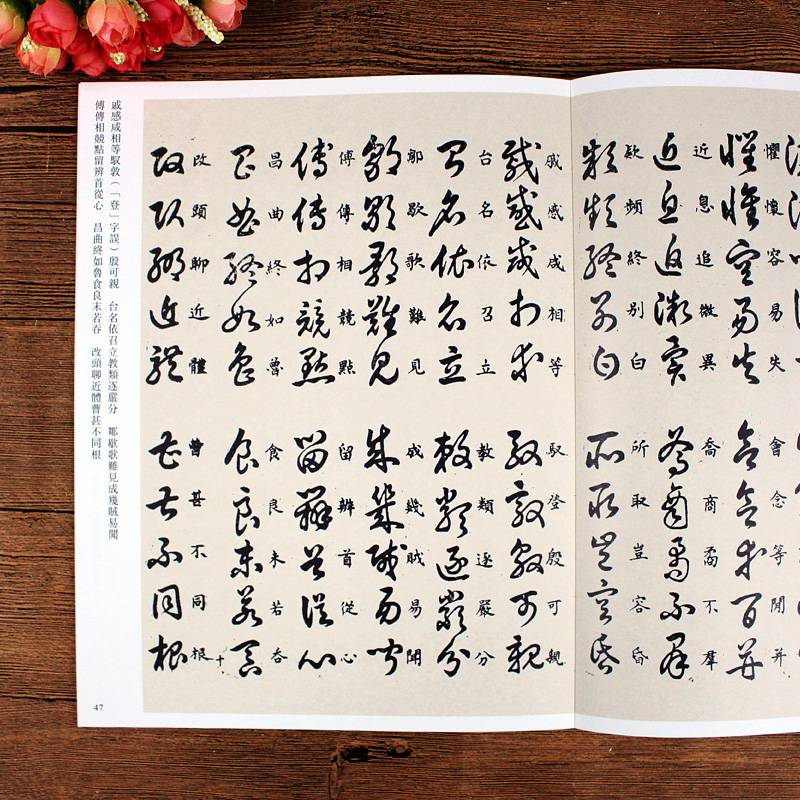 懼懷容易失 會念等閒并
近息追微異 喬商矞不羣
欵頻終別白 所取豈容昏
戚感咸相等 馭登殷可親
台名依召立 敎類逐嚴分
鄒歇歌難見 成幾賊易聞
傅傳相競點 留辨首從心
昌曲終如魯 食良末若吞
改頭聊近體 曹甚不同根 十
戚感咸相等馭敦（「登」字誤）殷可親 台名依召立教類逐嚴分 鄒歇歌雖見成幾賊易聞
傅傳相競點留辨首從心 昌曲終如魯食良末若吞 改頭聊近體曹甚不同根
47